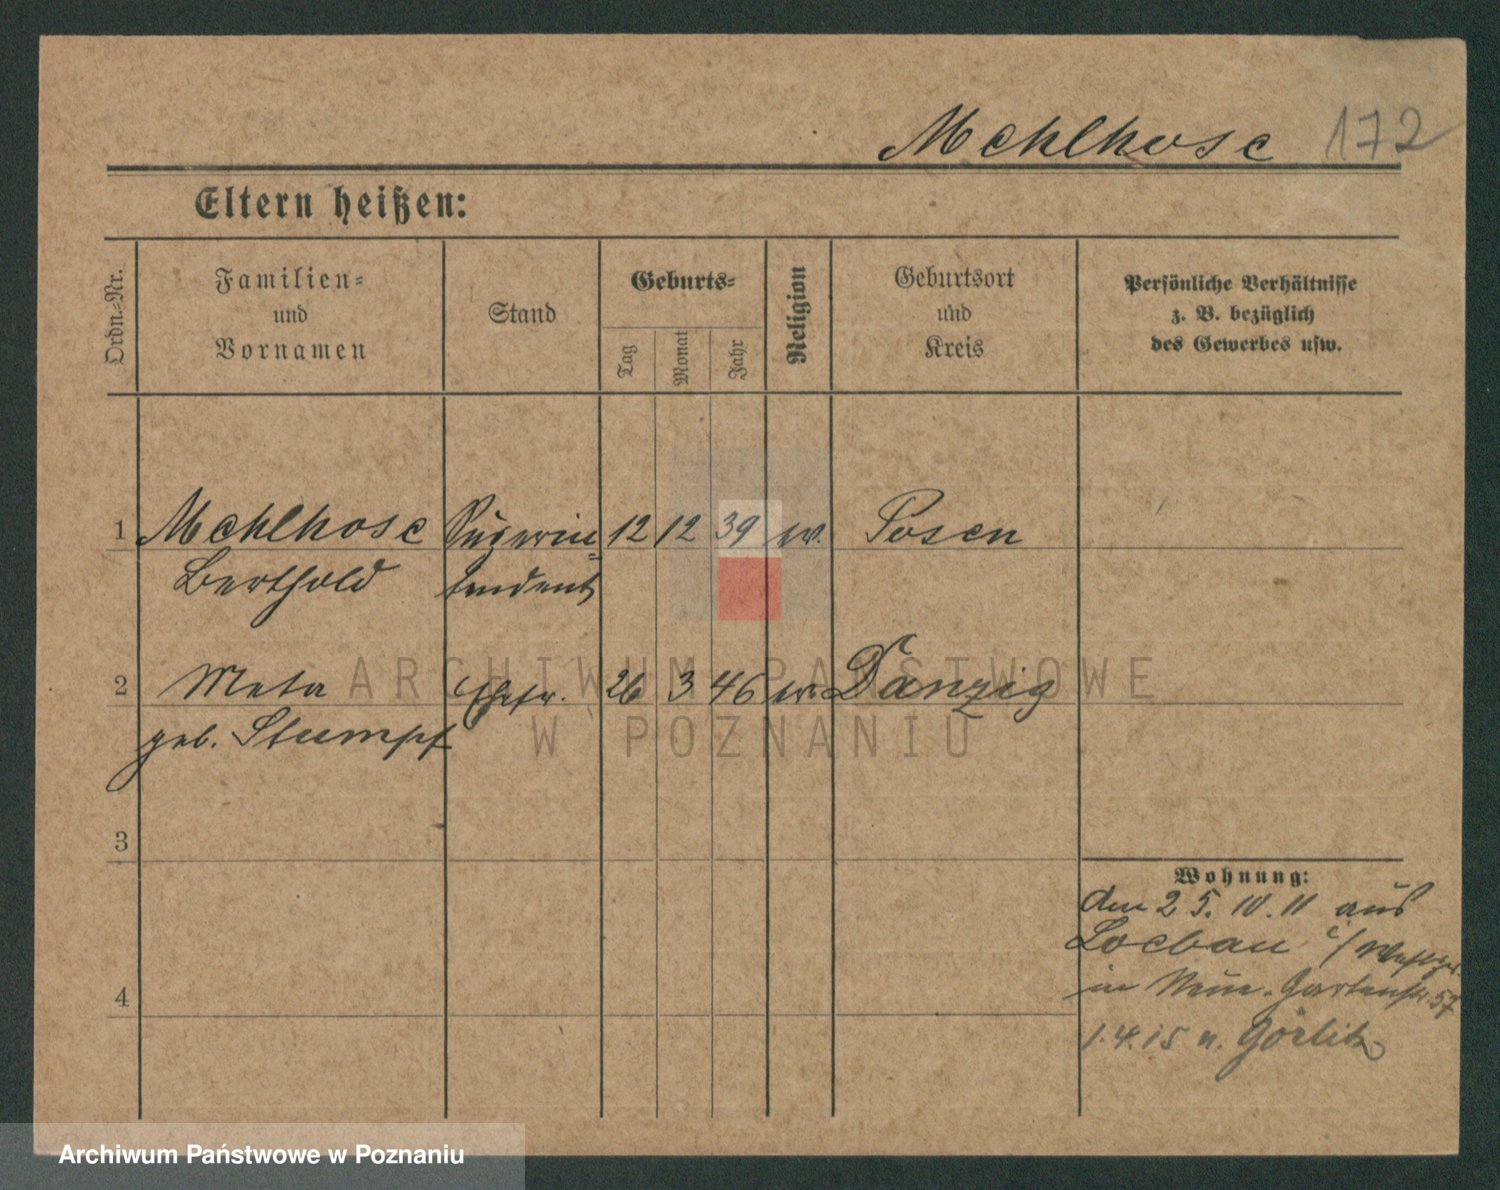 Mehlhose 172
Eltern heißen:
Ordn.-Nr.
Familien-
und
Vornamen
Stand
Geburts-
Tag
Monat
Jahr
Religion
Geburtsort
und
Kreis
Persönliche Verhältnisse
z. B. bezüglich
des Gewerbes usw.
1 Mehlhose Superin= 12 12 39 ev. Posen
Berthold tendent
2 Meta Ehefr. 26 3 46 ev. Danzig
geb. Stumpf
ARCHIWUM PAŃSTWOWE
W POZNANIU
3
Wohnung:
den 25. 10. 11 aus
Loebau i/ Westpr.
in Neue-Gartenstr. 57
4
1.4.15 n. Görlitz
Archiwum Państwowe w Poznaniu